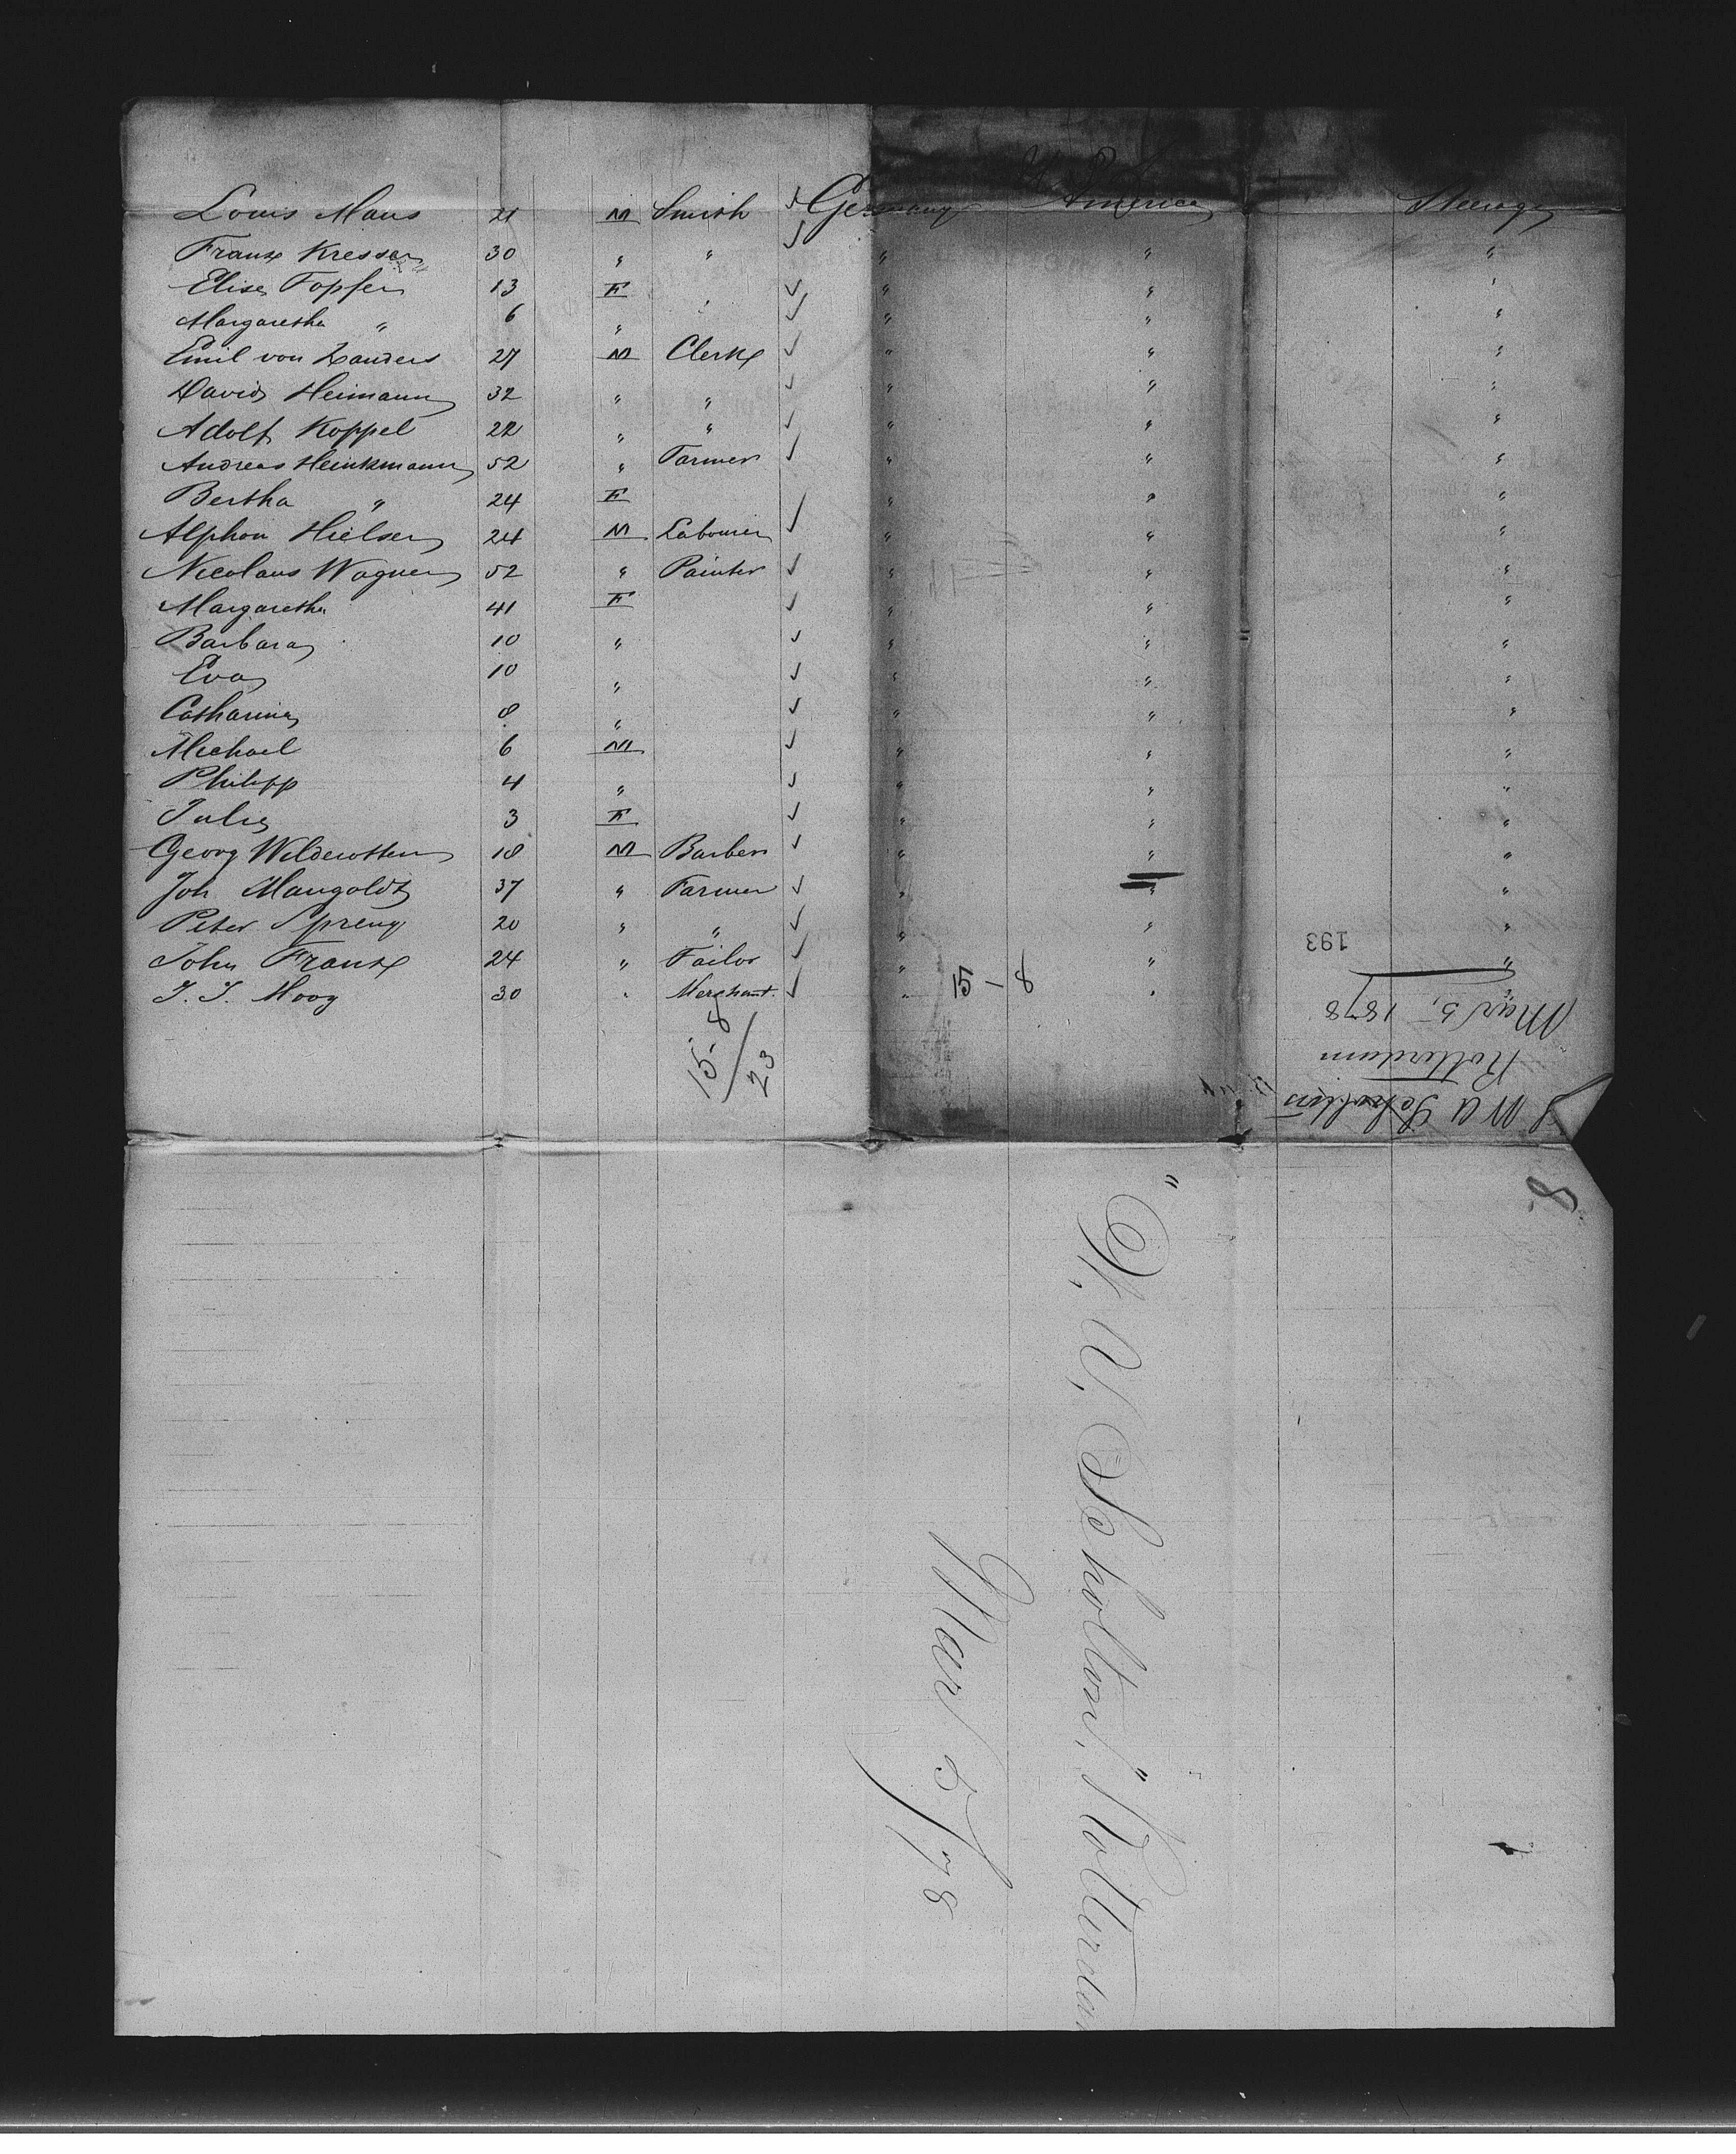 Louis Maus 21 M Smith ✓ Germany U. S. America Steerage
Franz Kresser 30 " " ✓ " " "
Elise Topfer 13 F ✓ " " "
Margaretha " 6 " ✓ " " "
Emil von Landers 27 M Clerk ✓ " " "
David Heimann 32 " " ✓ " " "
Adolf Koppel 22 " " ✓ " " "
Andreas Heinkmann 52 " Farmer ✓ " " "
Bertha " 24 F " " "
Alphon Hielser 24 M Labourer ✓ " " "
Nicolaus Wagner 52 " Painter ✓ " " "
Margaretha 41 F ✓ " " "
Barbara 10 " ✓ " " "
Eva 10 " ✓ " " "
Catharina 8 " ✓ " " "
Michael 6 M ✓ " " "
Philipp 4 " ✓ " " "
Julie 3 F ✓ " " "
Georg Wilderotter 18 M Barber ✓ " " "
Joh Mangoldt 37 " Farmer ✓ " " "
Peter Spreng 20 " " ✓ " " "
John Franz 24 " Tailor ✓ " " "
J. J. Hoog 30 " Merchant. ✓ " "
15 - 8
15-8/23
193
Mar 5, 1878
Rotterdam
S W A Scholten
8
"W. A. Scholten," Rotterdam
Mar 5/78